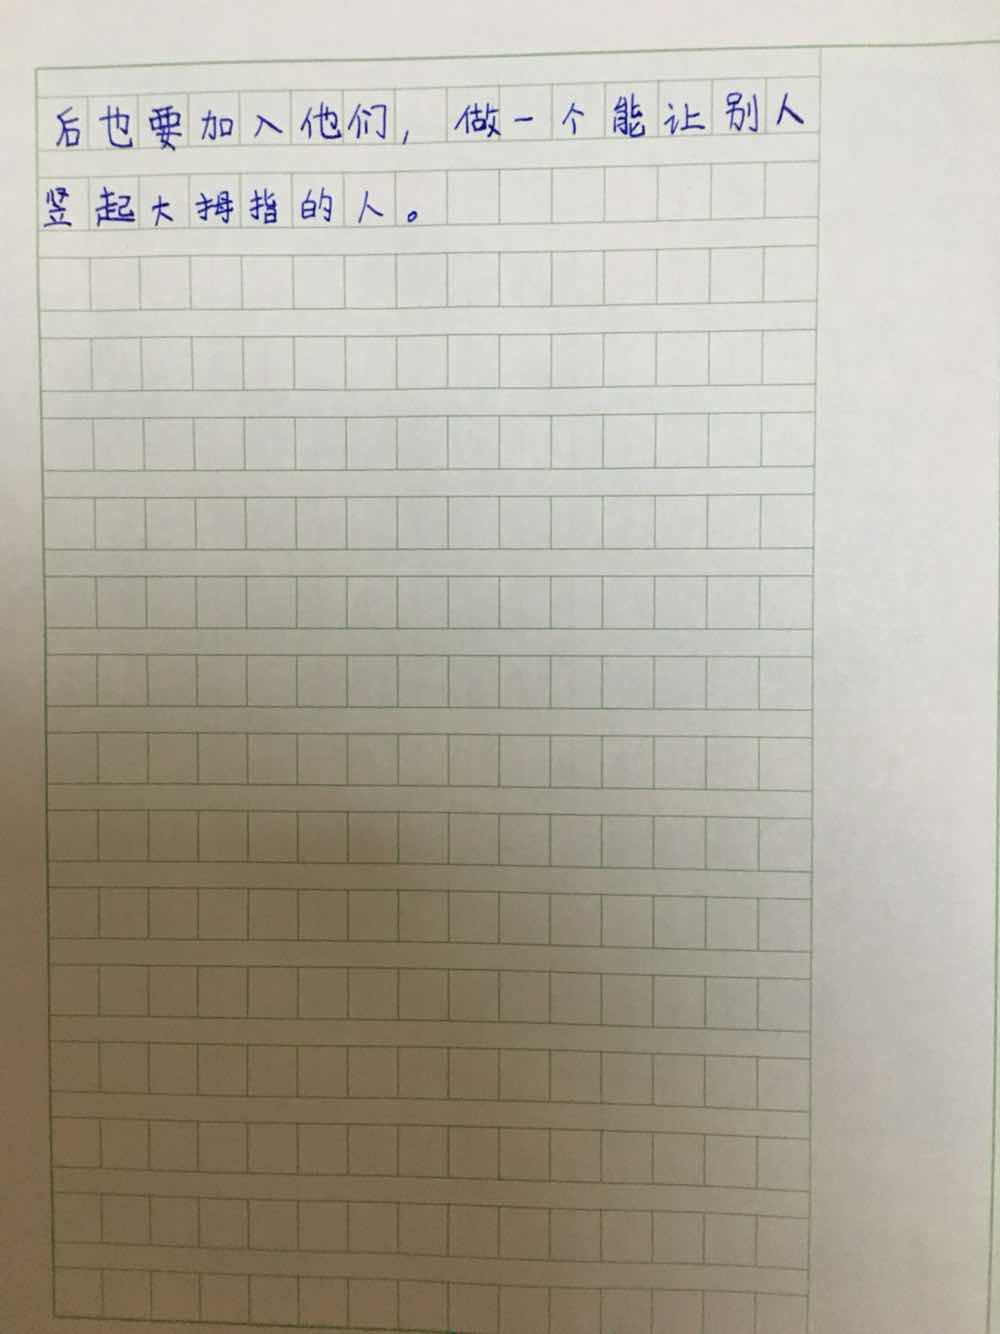 后也要加入他们，做一个能让别人
竖起大拇指的人。